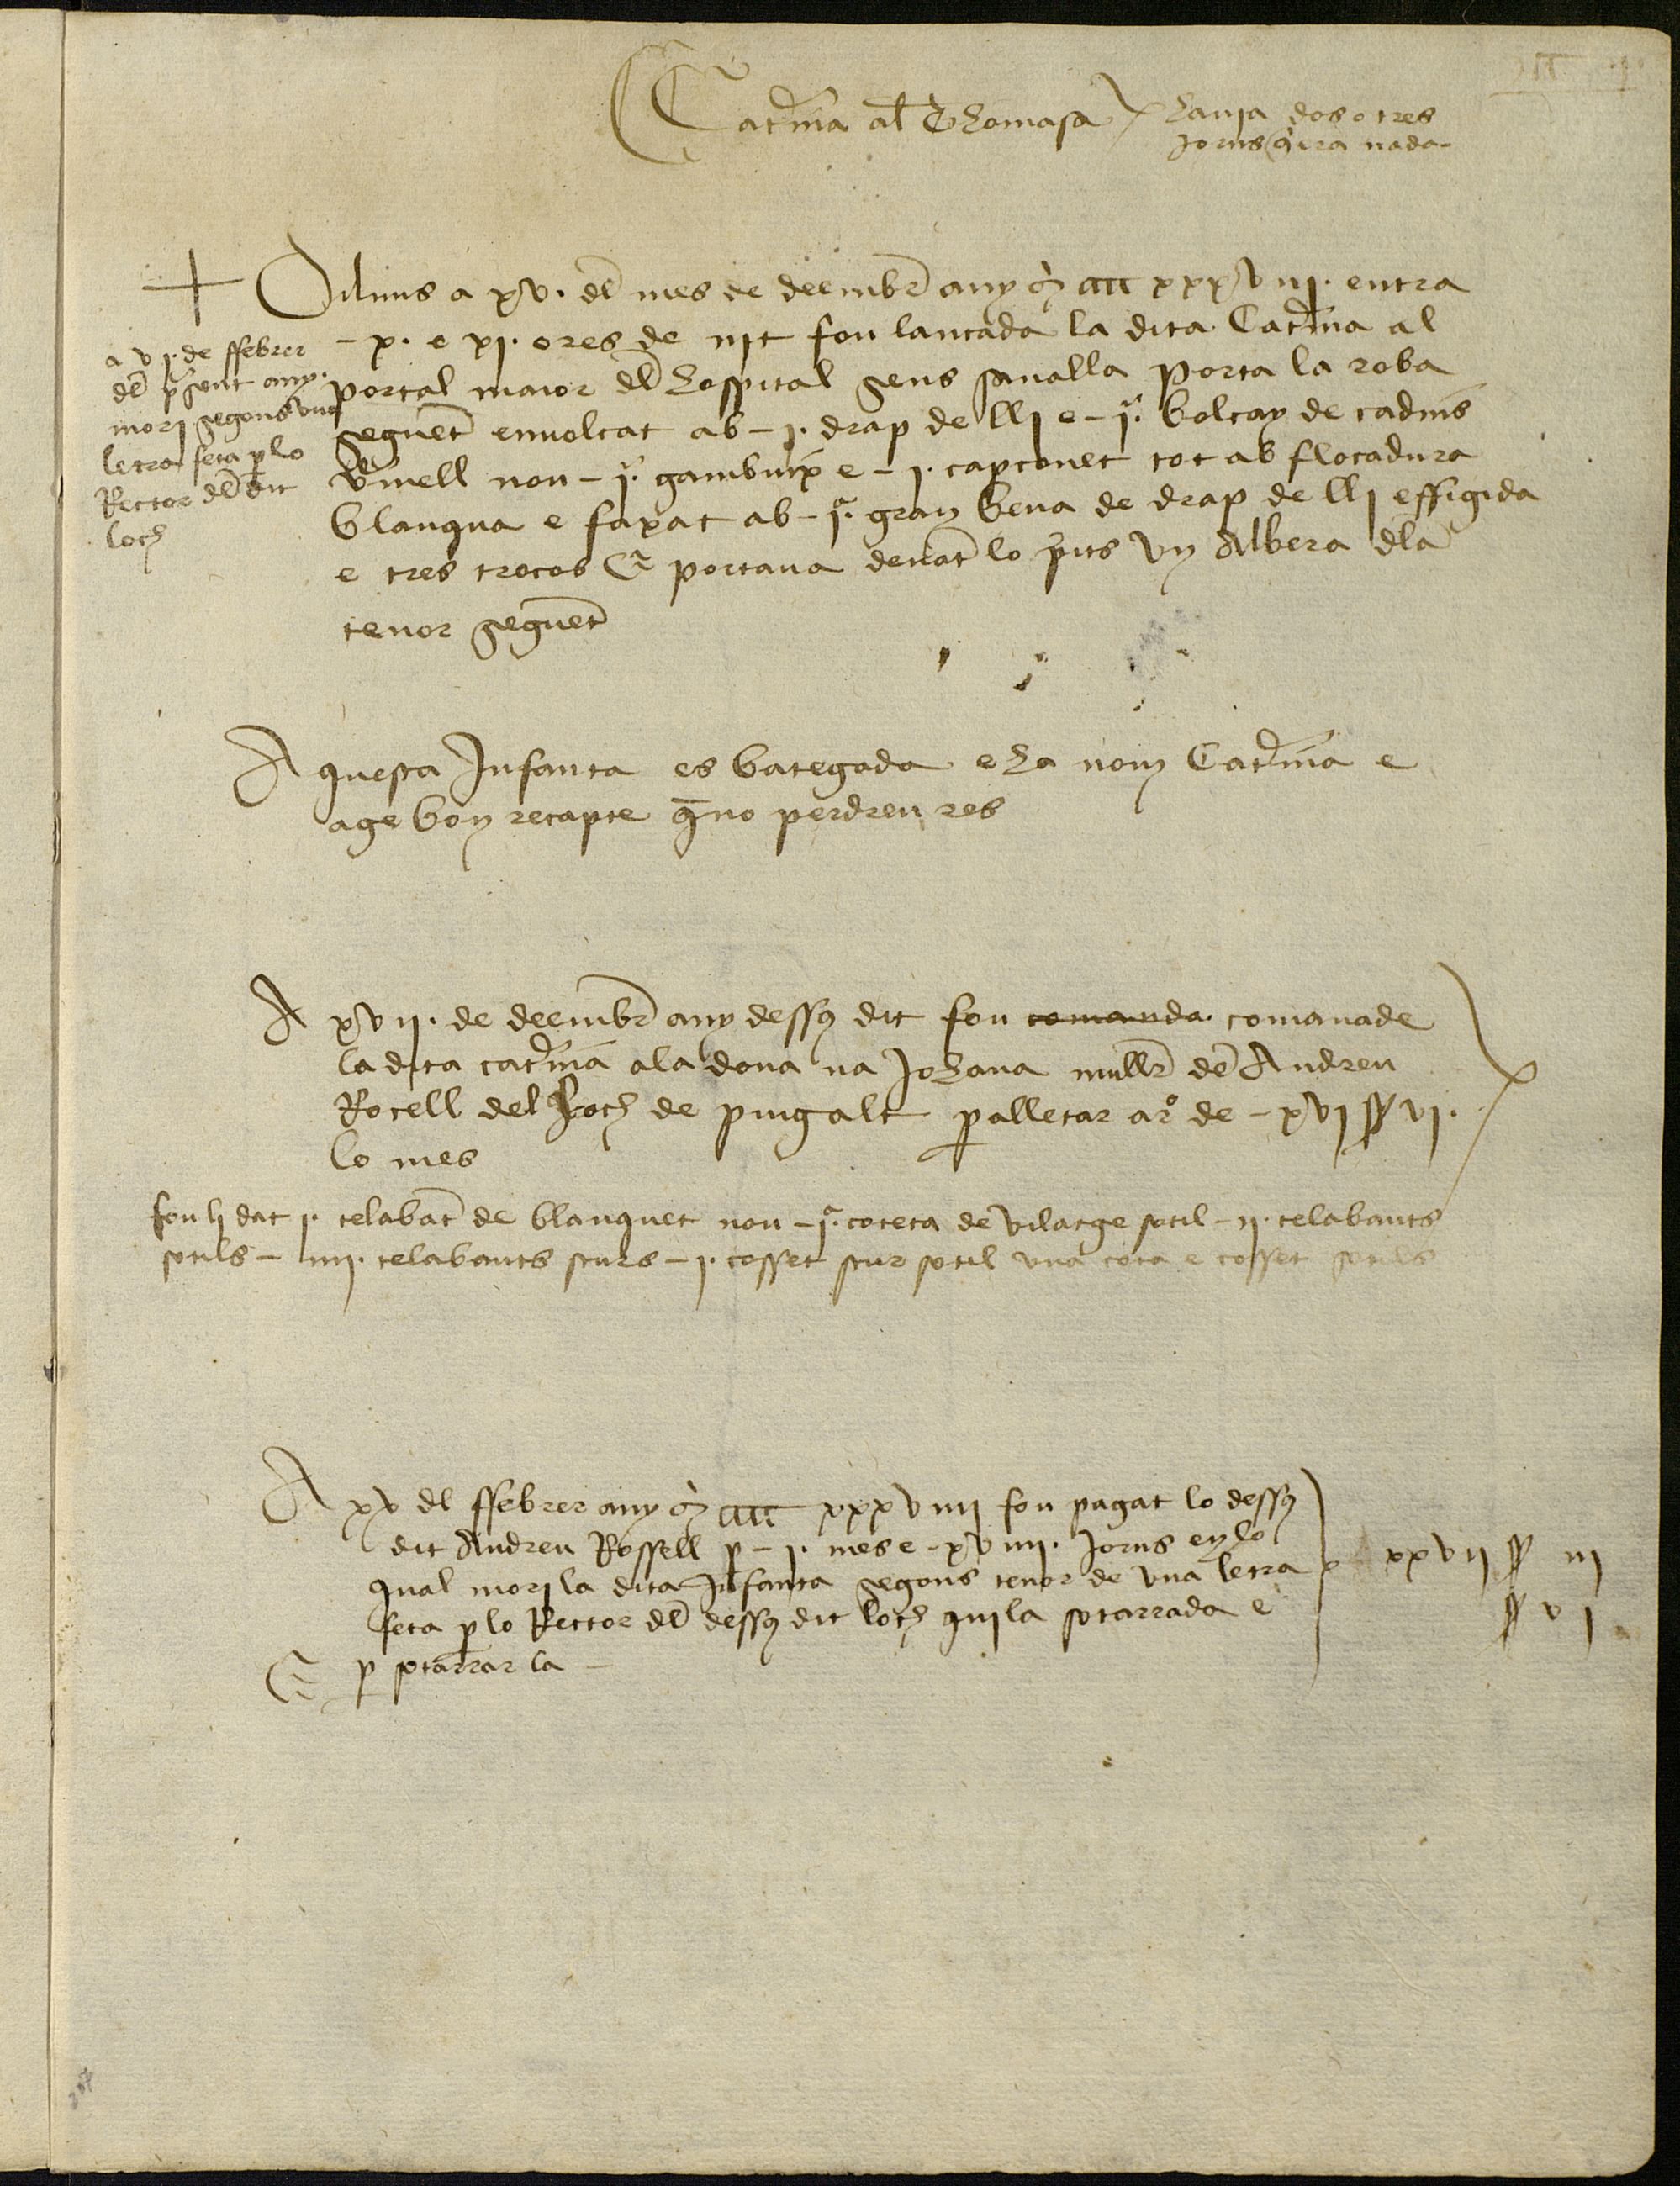 Cat̃ina al Thomasa
hauia dos o tres
jorns q̃ era nada
Dilluns a xv. del̃ mes de deembr̃ any M CCCC xxxviii. entra
- x. e xi. ores de nit fou lançada la dita Cat̃ina al
portal maior del̃ hospital sens senalla porta la roba
seguẽt enuolcat ab - j. drap de lli e - jª. bolcay de cadins
ṽmell nou - jª. gambuix e - j. capconet tot ab flocadura
blanqua e faxat ab - jª. gran bena de drap de lli effigida
e tres trocos Et̃ portaua deuãt lo pits vn Albera dla
tenor seguẽt
a vj. de ffebrer
del̃ p̃sent any.
mori segons vna
letra feta p̱ lo
Rector del̃ dit
loch
Aquesta Jnfanta es bategada e ha nom Cat̃ina e
age bon recapte q̃ no perdreu res
A xvii. de deembr̃ any dess9 dit fou comanda comanade
la dita cat̃ina a la dona na Johana mullr̃ dẽ Andreu
Rocell del loch de puigalt p̱ alletar a rº de - xvi ss vi.
lo mes
fou li dat j. telabãt de blanquet nou - jª. coteta de vilatge sotil - ii. telabants
sotils - iiii. telabants scurs - j. cosset scur sotil vna cota e cosset sotils
A xv dl ffebrer any M CCCC xxxviiii fou pagat lo dess9
dit Andreu Rossell p̱ - j. mes e - xviiii. jorns en lo
qual mori la dita Jnfanta segons tenor de vna letra
feta p̱ lo Rector del̃ dess9 dit loch qui la sotarrada e
Et̃ p̱ sotarrar la -
xxvii ss iii
ss vi